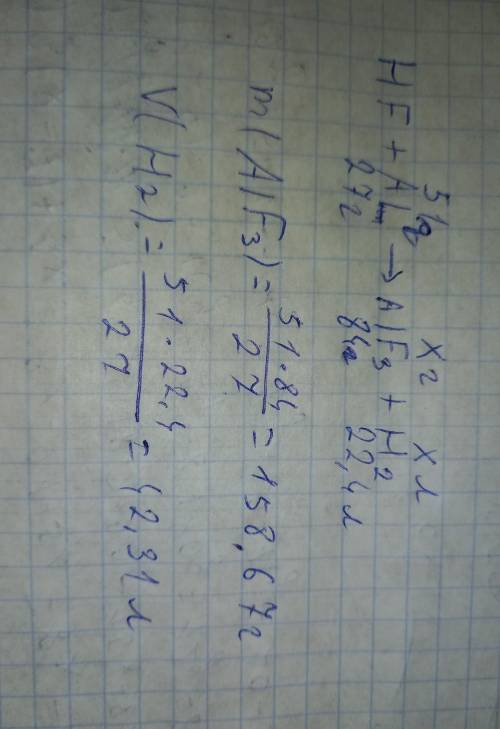 51г xг xл
HF + Al → AlF3 + H2
27г 84г 22,4л
m(AlF3) = 51·84/27 = 158,67г
V(H2) = 51·22,4/27 = 42,31л